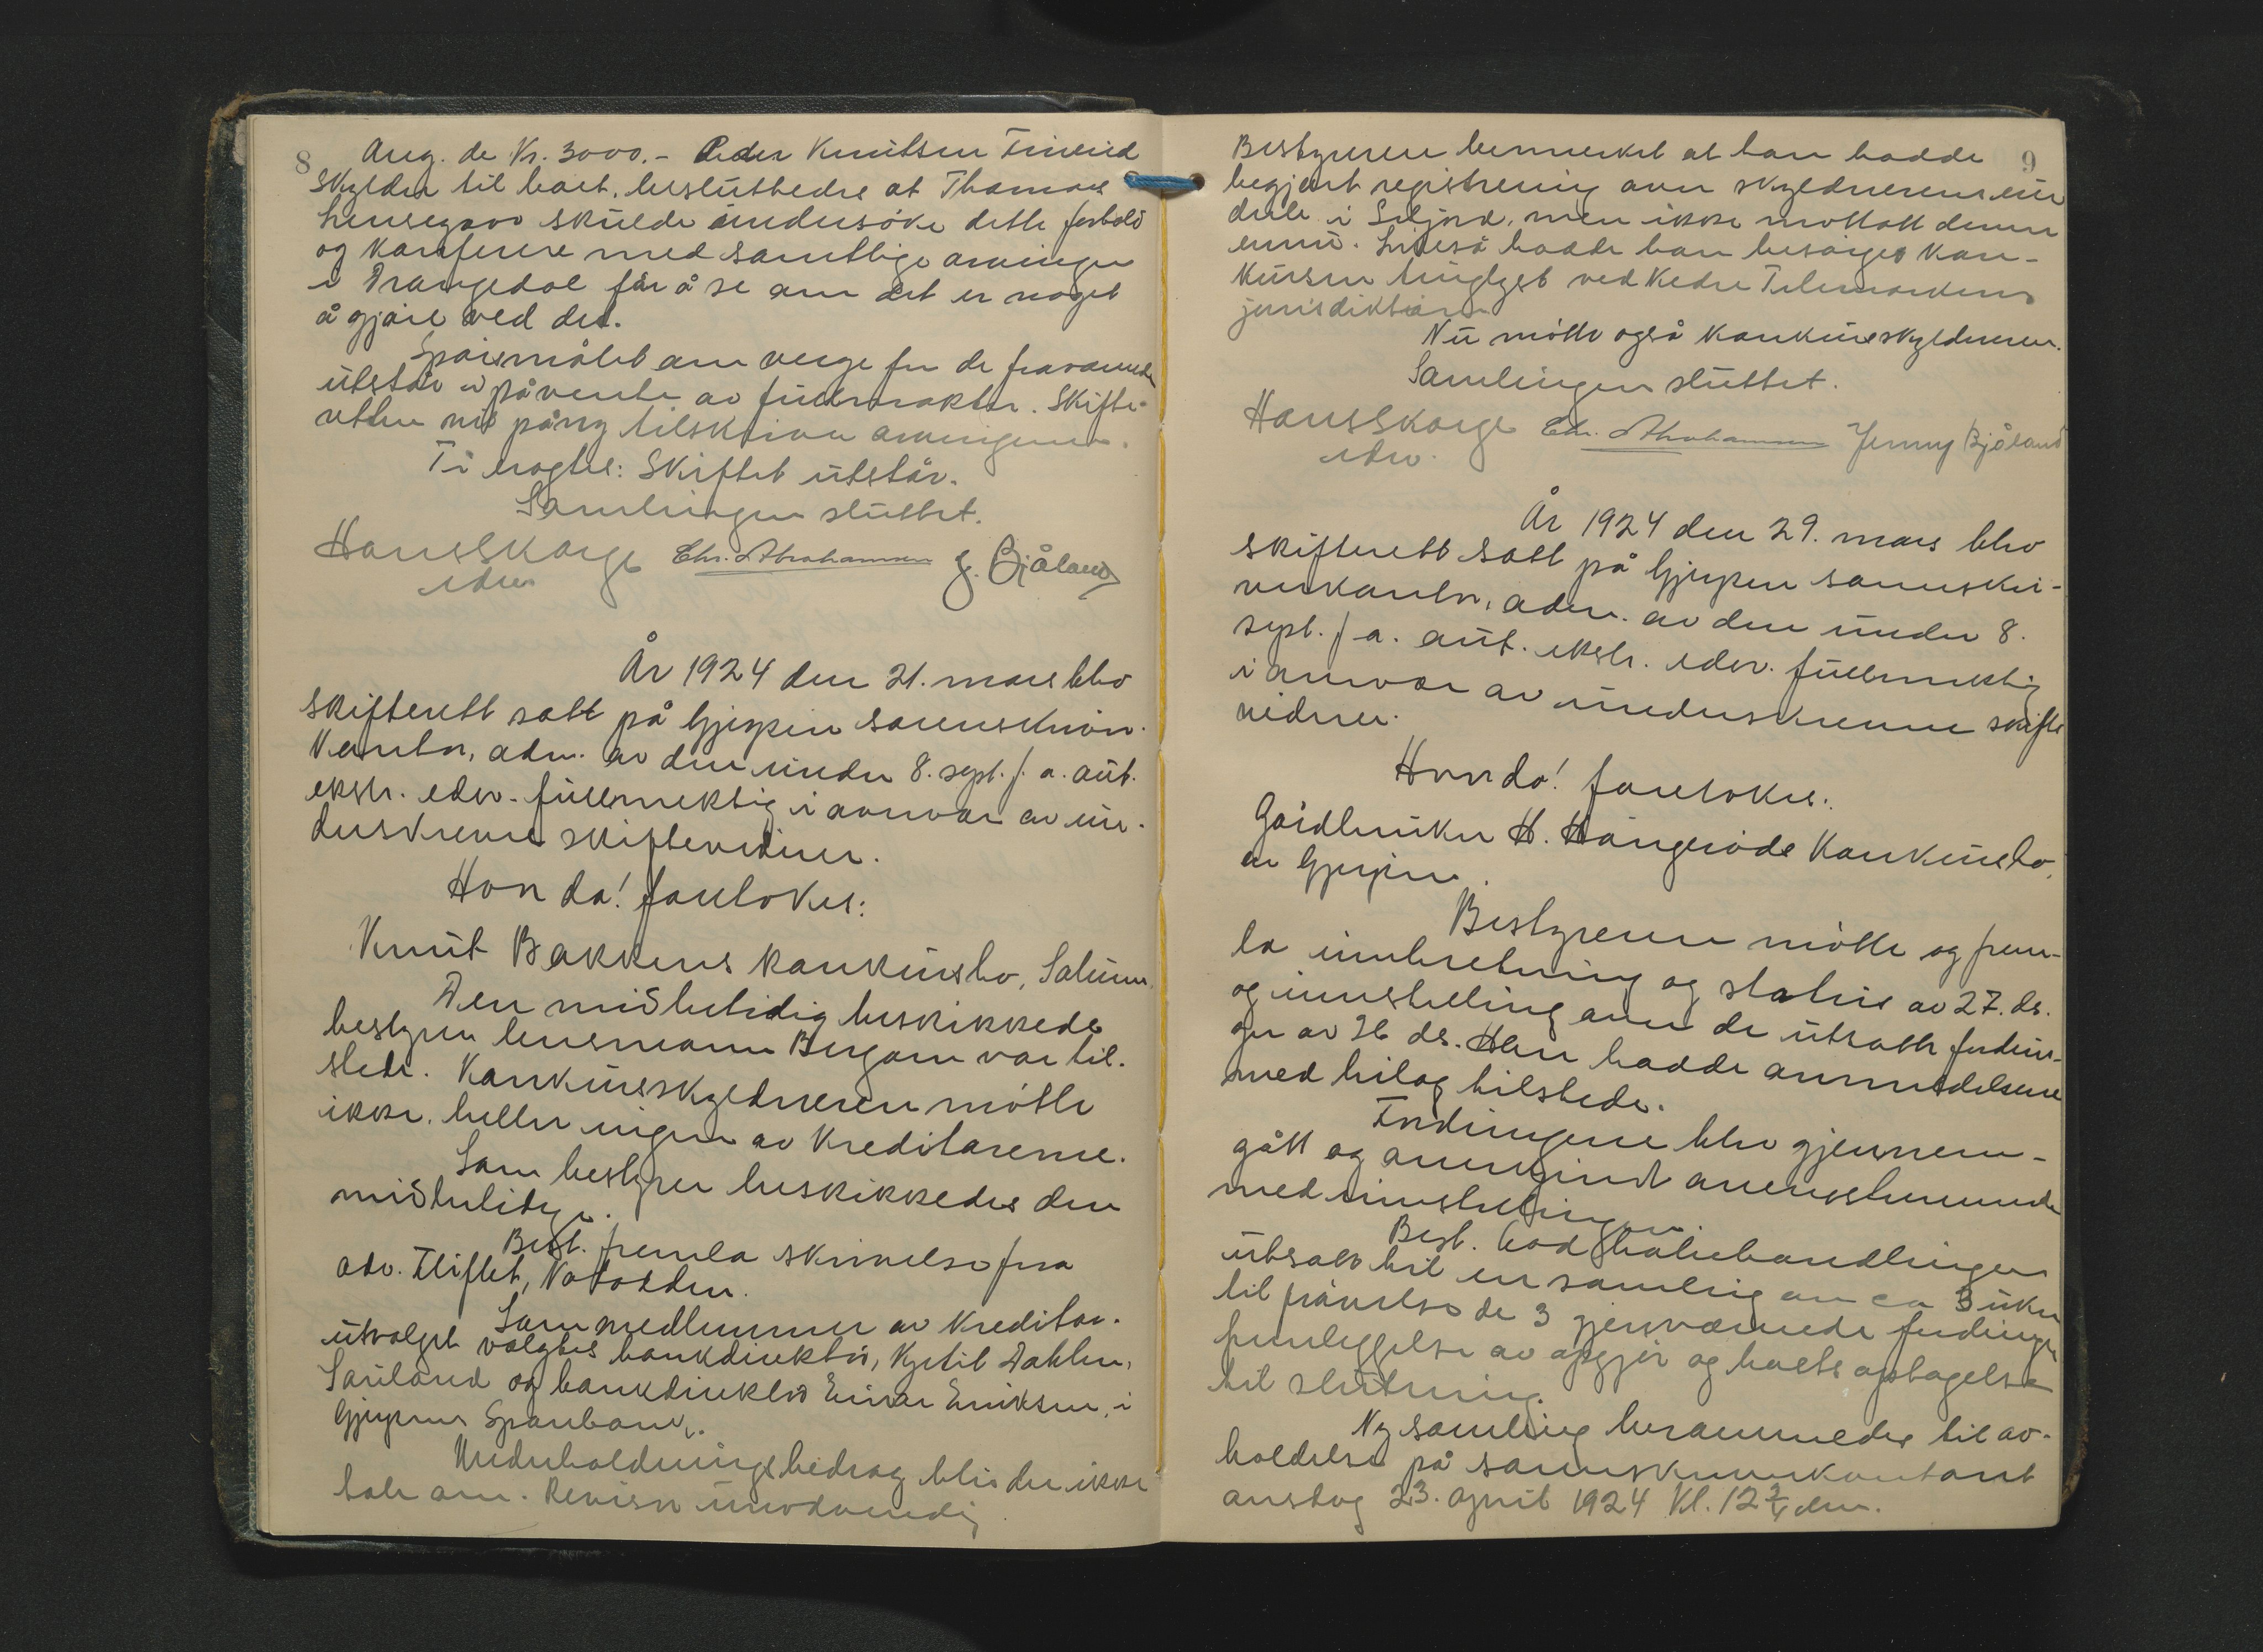 8
Ang. de Kr. 3000.- Peder Knutsen
skylder til boet, besluttedes at Thomas
skulde undersøke dette forhold
og konferere med samtlige arvinger
i Drangedal for å se om det er noget
å gjøre ved det.
Spørsmålet om verge for de fraværende
utstår i påvente av fullmakter. Skifte-
retten må påny tilskrive arvingene.
Ti vogtes: Skiftet utstår.
Samlingen sluttet.
Hans Skorge Chr. Abrahamsen J. Bjåland
edsv.
År 1924 den 21. mars blev
skifterett satt på Gjerpen sorenskriv.
kontor, adm. av den under 8. sept. f. a. aut.
ekstr. edsv. fullmektig i overvær av un-
derskrevne skiftevidner.
Hvor da! foretokes:
Knut Bakkens konkursbo, Solum.
Den midlertidig beskikkede
bestyrer lensmann Bergan var til-
stede. Konkursskyldneren møtte
ikke, heller ingen av kreditorerne.
Som bestyrer beskikkedes den
midlertidige.
Best. fremla skrivelse fra
adv. Fliflet, Notodden.
Som medlemmer av kreditor-
utvalget valgtes bankdirektør, Kjetil Dahlen,
Sauland og bankdirektør Einar Eriksen, i
Gjerpens Sparebank.
Underholdningsbedrag blir der ikke
tale om. Revisor unødvendig
9
Bestyreren bemerket at han hadde
begjært registrering over skyldnerens ein
dele i Seljord, men ikke mottatt denne
ennu. Likeså hadde han besørget kon-
kursen tinglyst ved Nedre Telemarkens
jurisdiktion
Nu møtte også konkursskyldneren.
Samlingen sluttet.
Hans Skorge Chr. Abrahamsen Jenny Bjåland
edsv.
År 1924 den 29. mars blev
skifterett satt på Gjerpen sorenskri-
verkontor, adm. av den under 8.
sept. f a. aut. ekstr. edsv. fullmektig
i overvær av underskrevne skifte
vidner.
Hvor da! foretokes:
Gårdbruker H. Hångerøds konkursbo,
av Gjerpen.
Bestyreren møtte og frem-
la innberetning og status av 27. ds.
og innstilling over de utsatte fordrin-
ger av 26 ds. Han hadde anmeldelsene
med bilag tilstede.
Fordringene blev gjennem-
gått og anerkjent overensstemmende
med innstillingen.
Best. bad bobehandlingen
utsatt til en samling om ca 3 uker
til prøvelse de 3 gjenværende fordringer
fremleggelse av opgjør og boets optagelse
til slutning.
Ny samling berammedes til av-
holdelse på sorenskriverkontoret
onsdag 23. april 1924 kl. 12 3/4 em.